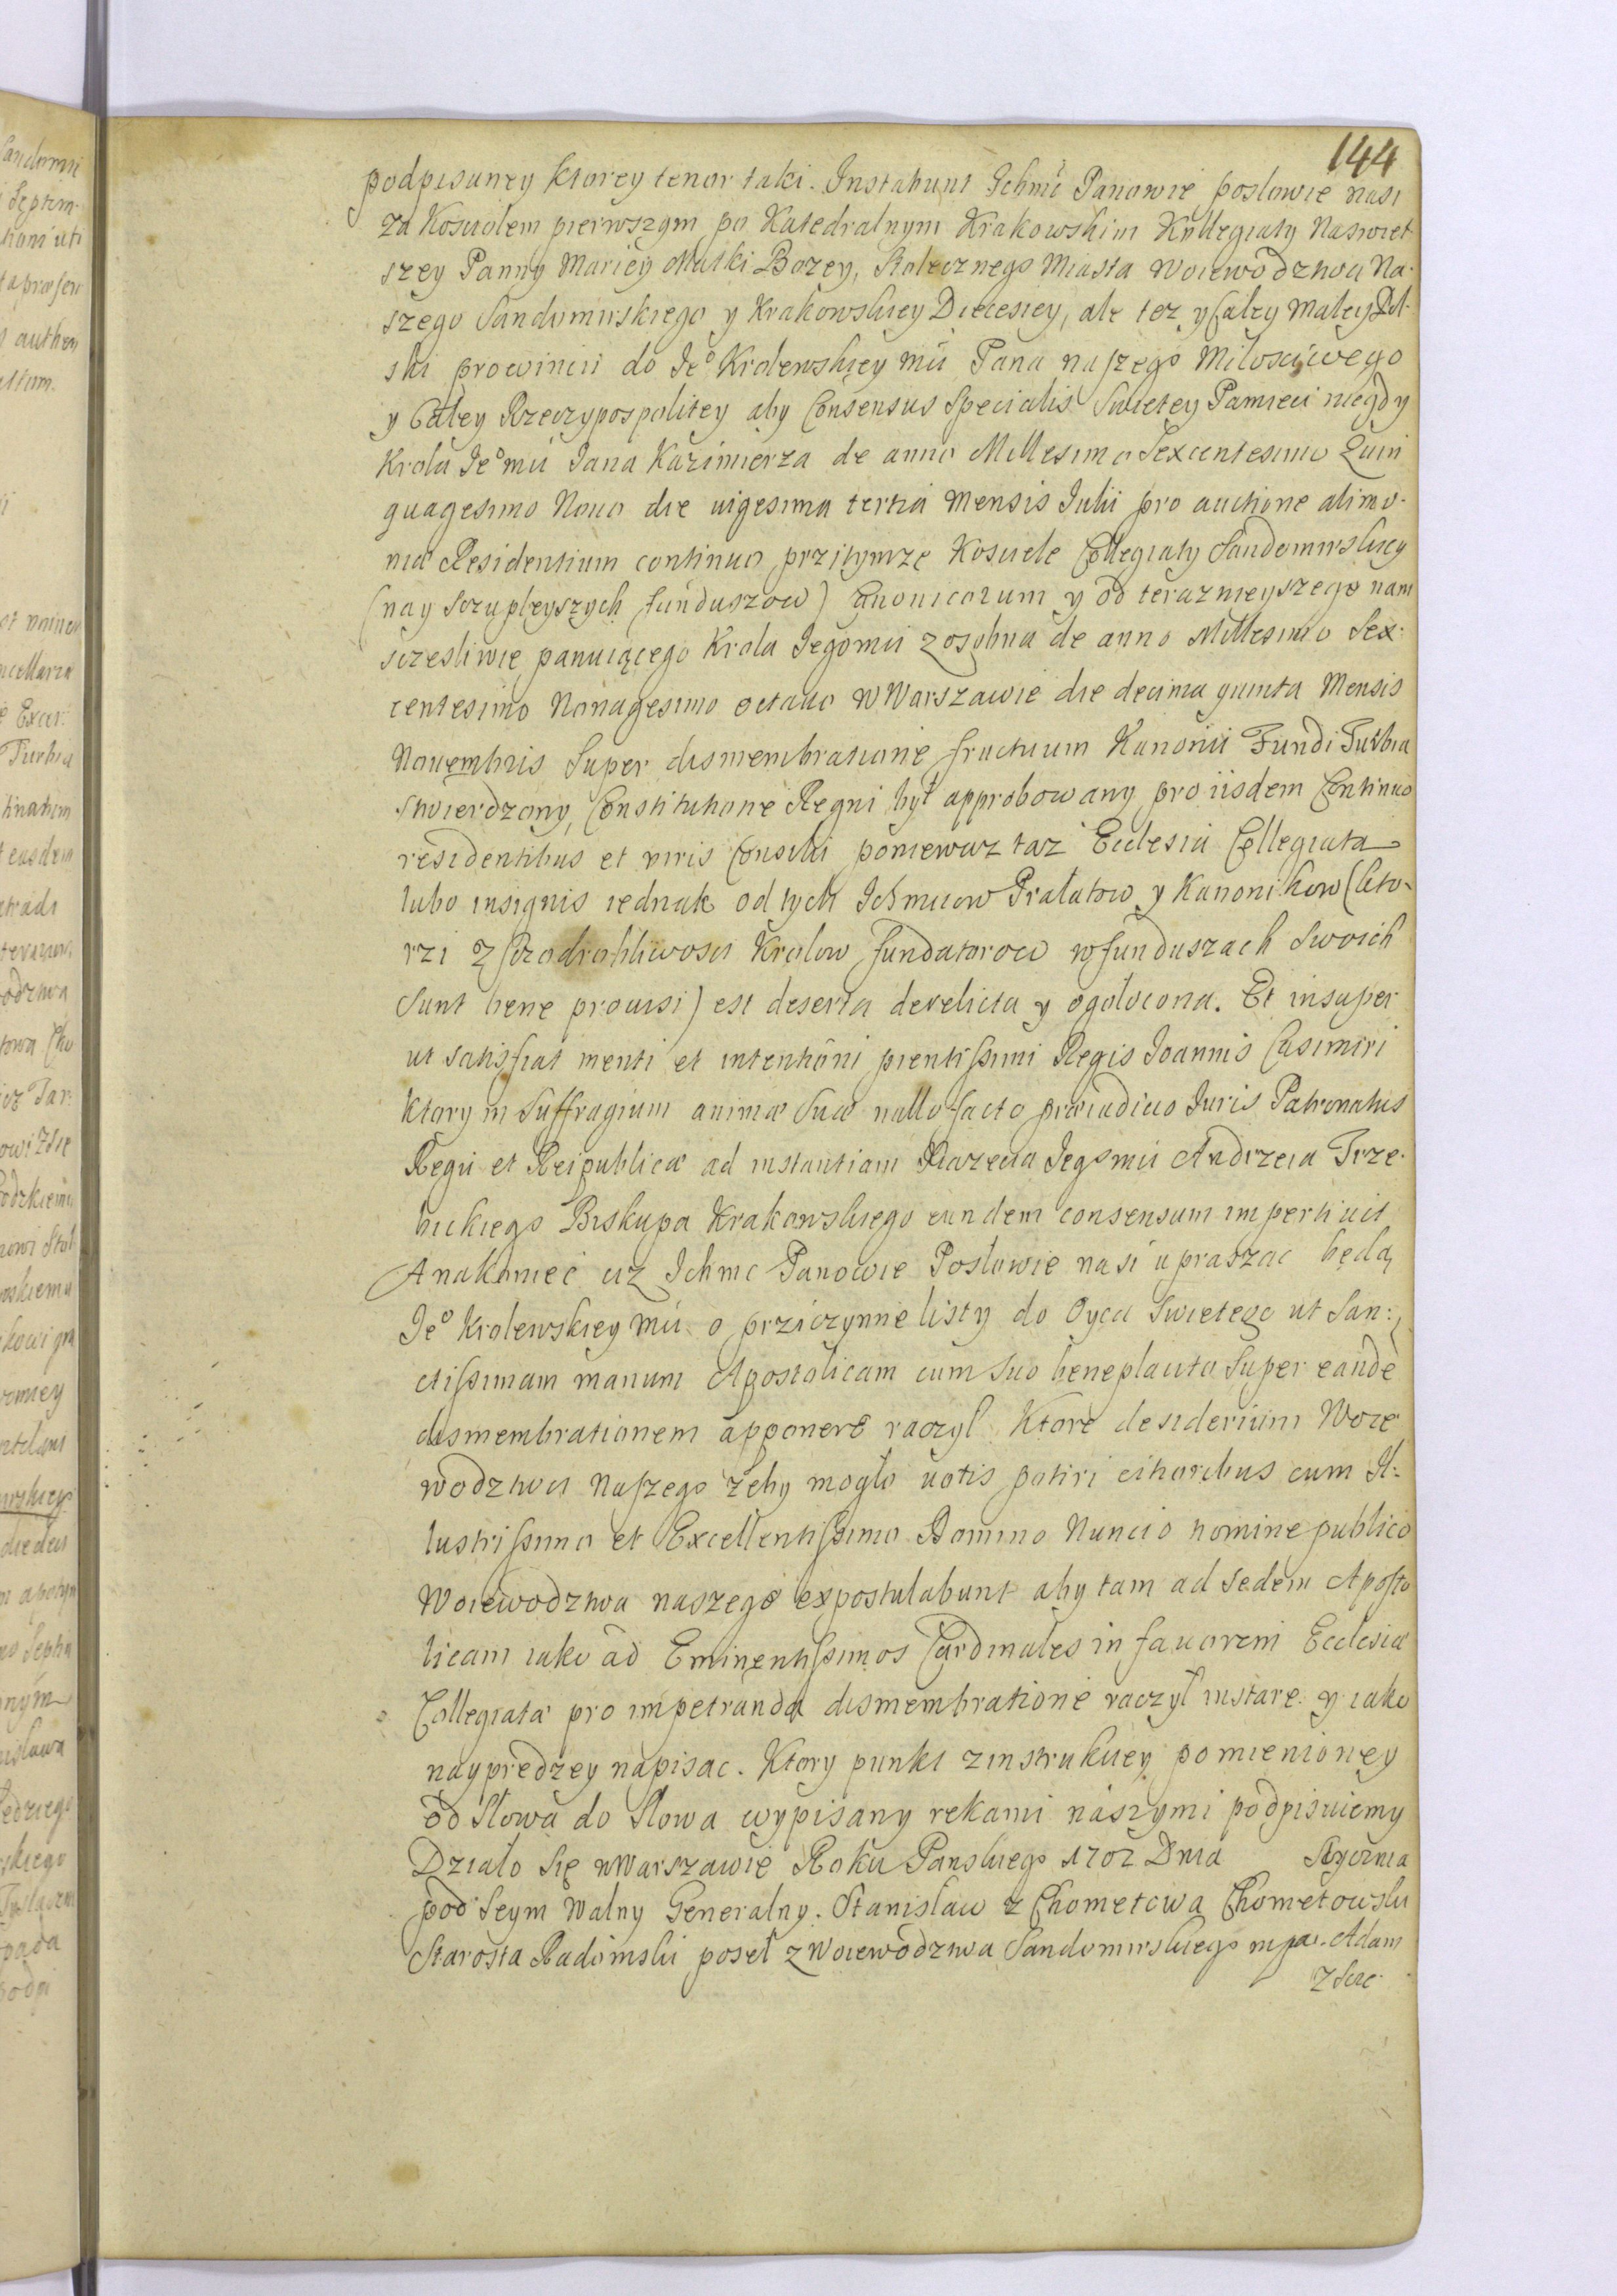 144
podpisaney ktorey tenor taki. Instabunt Ichmć Panowie posłowie nasi
za Kosciołem pierwszym po Katedralnym Krakowskim Kollegiaty Naswiet
szey Panny Mariey Matki Bozey, Stołecznego Miasta Woiewodztwa Na-
szego Sandomirskiego y Krakowskiey Diecesiey, ale tez y Całey Małey Pol-
ski prowincii do Ieº Krolewskiey mći Pana naszego Miłosciwego
y Całey Rzeczypospolitey aby Consensus Specialis Swietey Pamieci niegdy
Krola Ieº mći Iana Kazimierza de anno Millesimo Sexcentesimo Quin
quagesimo Nono die uigesima tertia Mensis Iulii pro auctione alimo-
niæ Residentium continuo przitymze Kosciele Collegiaty Sandomirskiey
(nay sczupleyszych funduszow) Canonicorum y od teraznieyszego nam
sczesliwie panuiącego Krola Iegomći zosobna de anno Millesimo Sex-
centesimo Nonagesimo octauo w Warszawie die decima quinta Mensis
Nouembris Super dismembratione fructuum Kanonii Fundi Turbia
stwierdzony, Constitutione Regni był approbowany pro iisdem Continuo
residentibus et viris Consilii poniewaz taz Ecclesia Collegiata
lubo insignis iednak od tych Ichmciow Prałatow y Kanonikow (kto-
rzi z sczodrobliwosci Krolow fundatorow w funduszach Swoich
Sunt bene prouisi) est deserta derelicta y ogołocona. Et insuper
ut satisfiat menti et intentioni pientissimi Regis Ioannis Casimiri
Ktory in Suffragium animæ Suæ nullo facto præiudicio Iuris Patronatus
Regii et Reipublicæ ad instantiam Xiazecia Iegomći Andrzeia Trze-
bickiego Biskupa Krakowskiego eundem consensum impertiuit
Anakoniec uz Ichmc Panowie Posłowie nasi upraszac będą
Ieº Krolewskiey mći o prziczynne listy do Oyca Swietego ut San-
ctissimam manum Apostolicam cum suo beneplacito Super eandē
dismembrationem apponere raczył. Ktore desiderium Woie
wodztwa Naszego zeby mogło uotis potiri citioribus cum Il-
lustrissimo et Excellentissimo Domino Nuncio nomine publico
Woiewodztwa naszego expostulabunt aby tam ad Sedem Aposto
licam iako ad Eminentissimos Cardinales in fauorem Ecclesiæ
Collegiatæ pro impetranda dismembratione raczył instare y iako
naypredzey napisac. Ktory punkt z instrukciey pomienioney
od Słowa do Słowa wypisany rekami naszymi podpisuiemy
Działo Się w Warszawie Roku Panskiego 1702 Dnia Stycznia
pod Seym Walny Generalny. Stanisław z Chometowa Chometowski
Starosta Radomski poseł z Woiewodztwa Sandomirskiego mpa. Adam